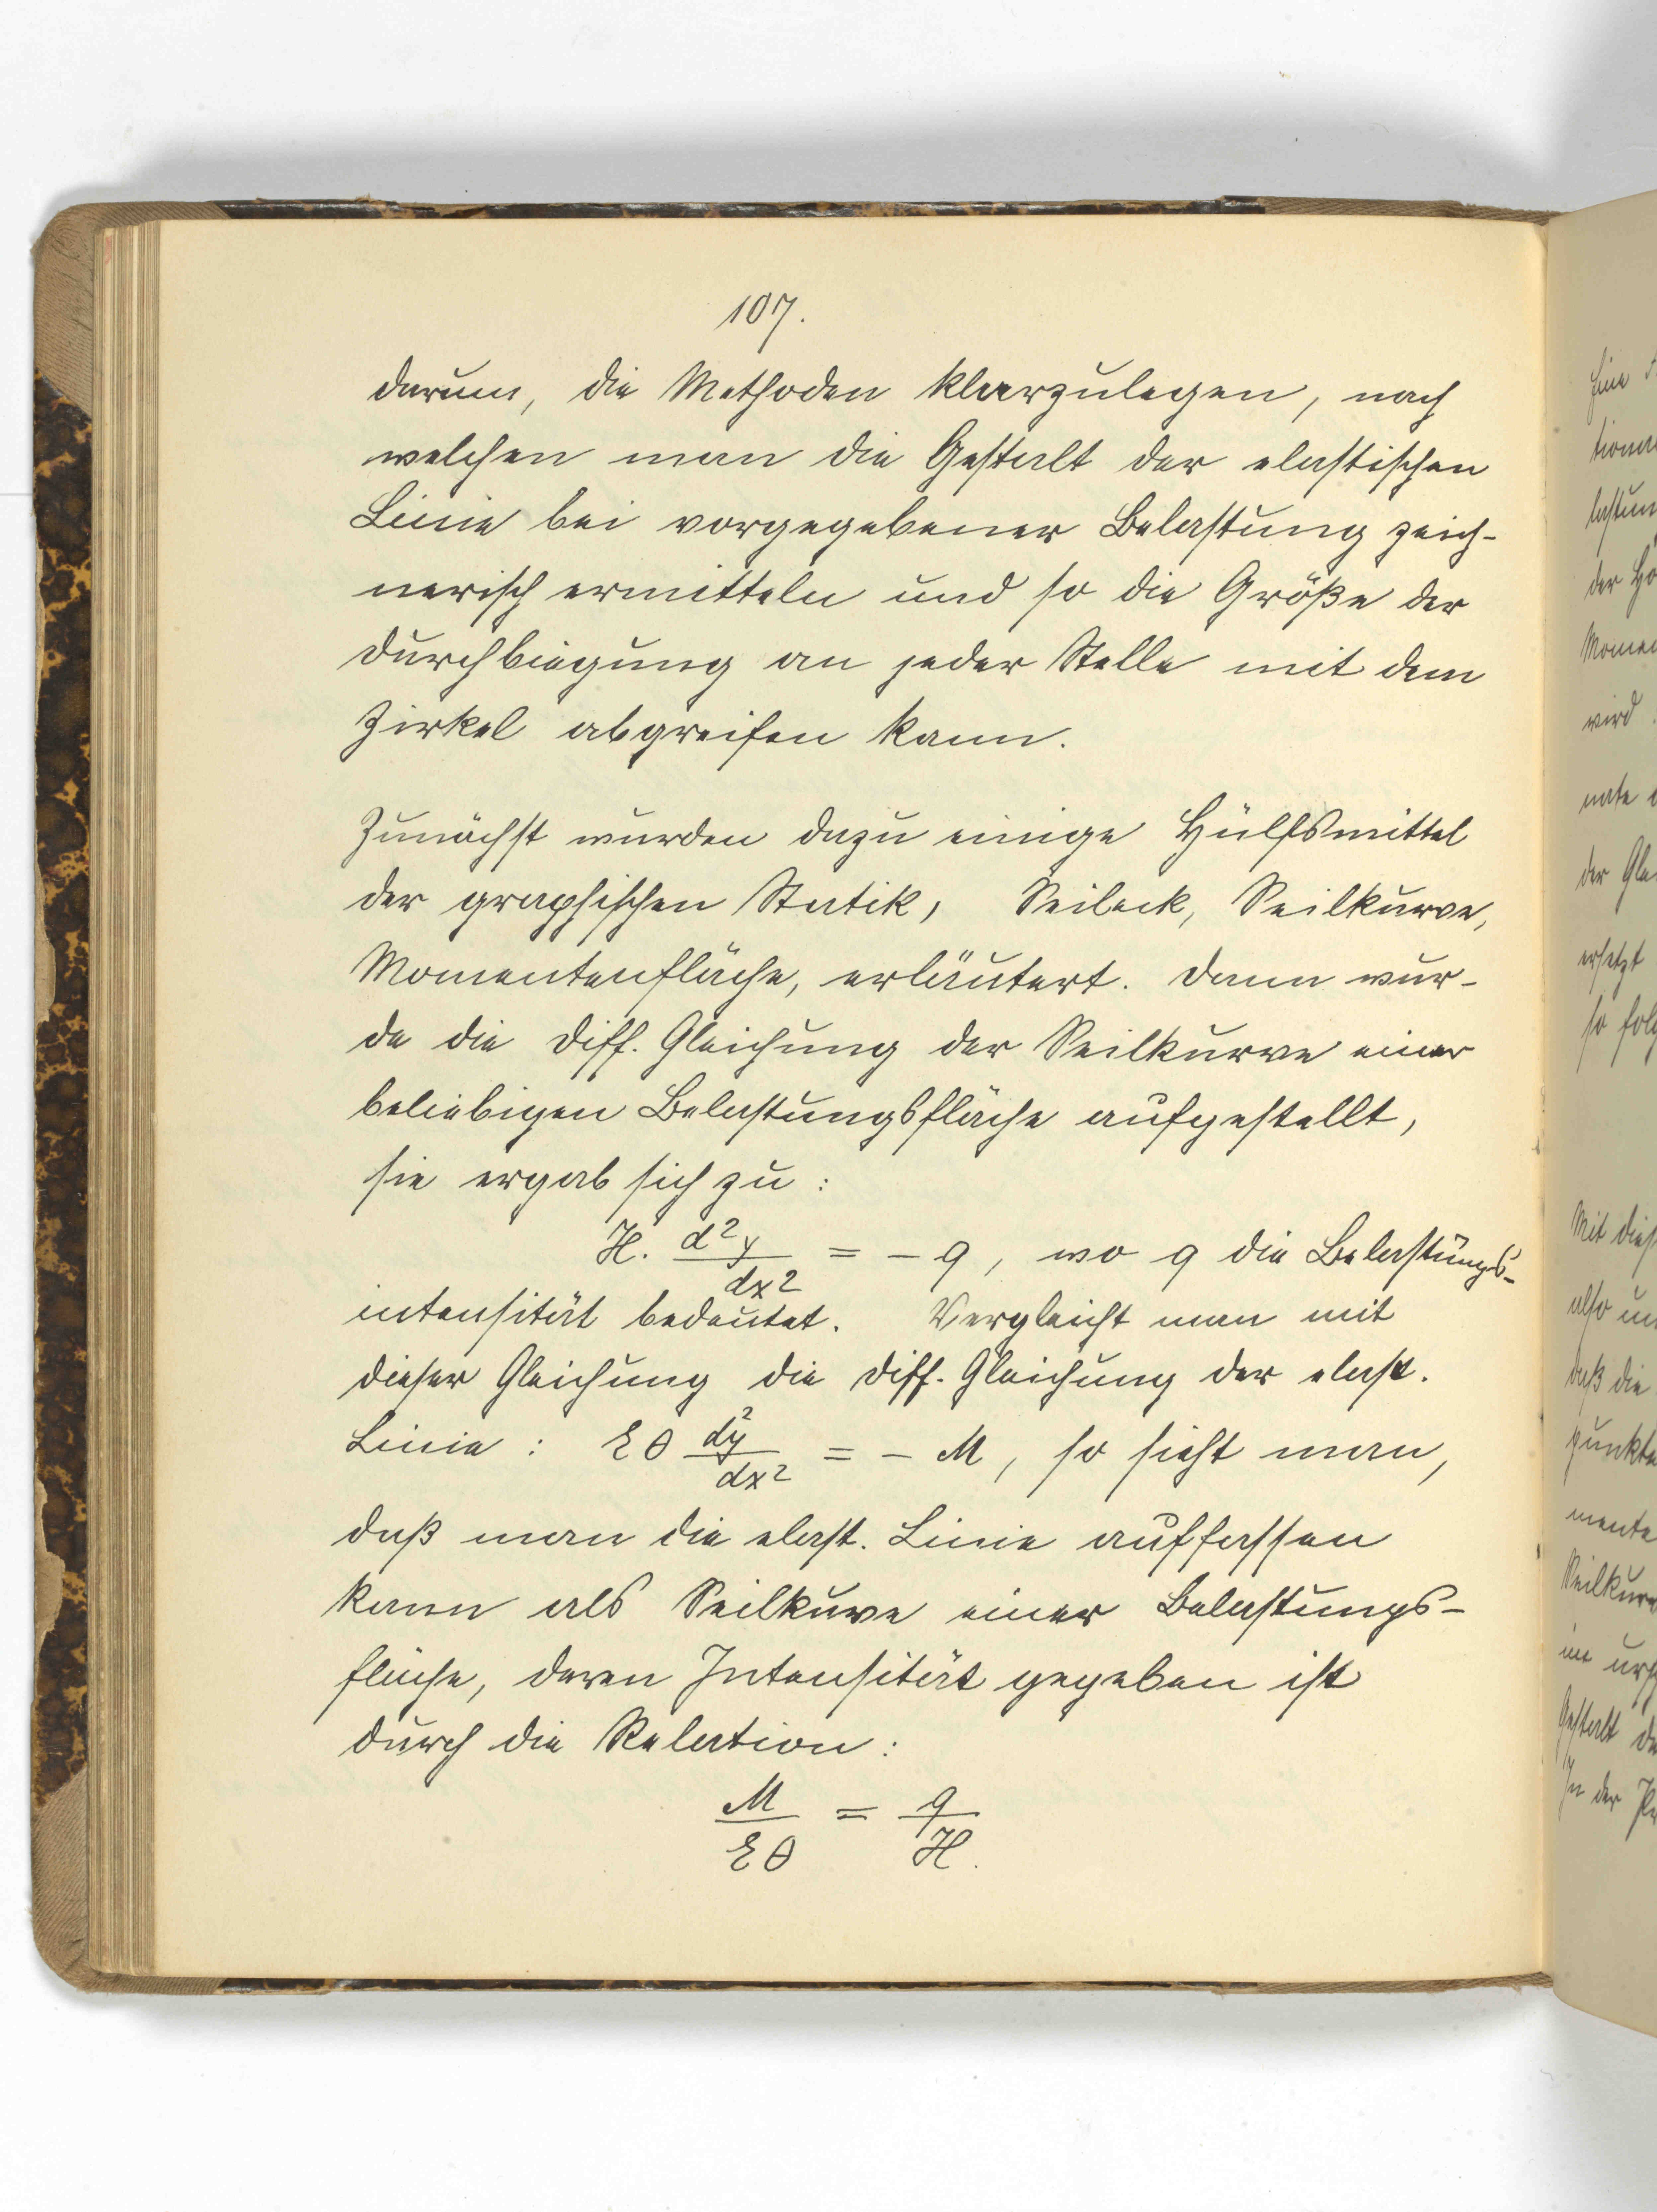 107.
darum, die Methoden klarzulegen, nach
welchen man die Gestalt der elastischen
Linie bei vorgegebener Belastung zeich-
nerisch ermitteln und so die Größe der
Durchbiegung an jeder Stelle mit dem
Zirkel abgreifen kann.
Zunächst wurden dazu einige Hülfsmittel
der graphischen Statik, Seileck, Seilkurve,
Momentenfläche, erläutert. Dann wur-
de die Diff. Gleichung der Seilkurve einer
beliebigen Belastungsfläche aufgestellt,
sie ergab sich zu:
H. d²y/dx² = - q, wo q die Belastungs-
intensität bedeutet. Vergleicht man mit
dieser Gleichung die Diff. Gleichung der elast.
Linie: EΘ d²y/dx² = - M, so sieht man,
daß man die elast. Linie auffassen
kann als Seilkurve einer Belastungs-
fläche, deren Intensität gegeben ist
durch die Relation:
M/EΘ = q/H.
Eine
lastun
der
Momen
wird
nate
der Gle
ersetzt
so folg
Mit dies
also
daß die
punkte
mente
Seilkurv
im urs
Gestalt
In der